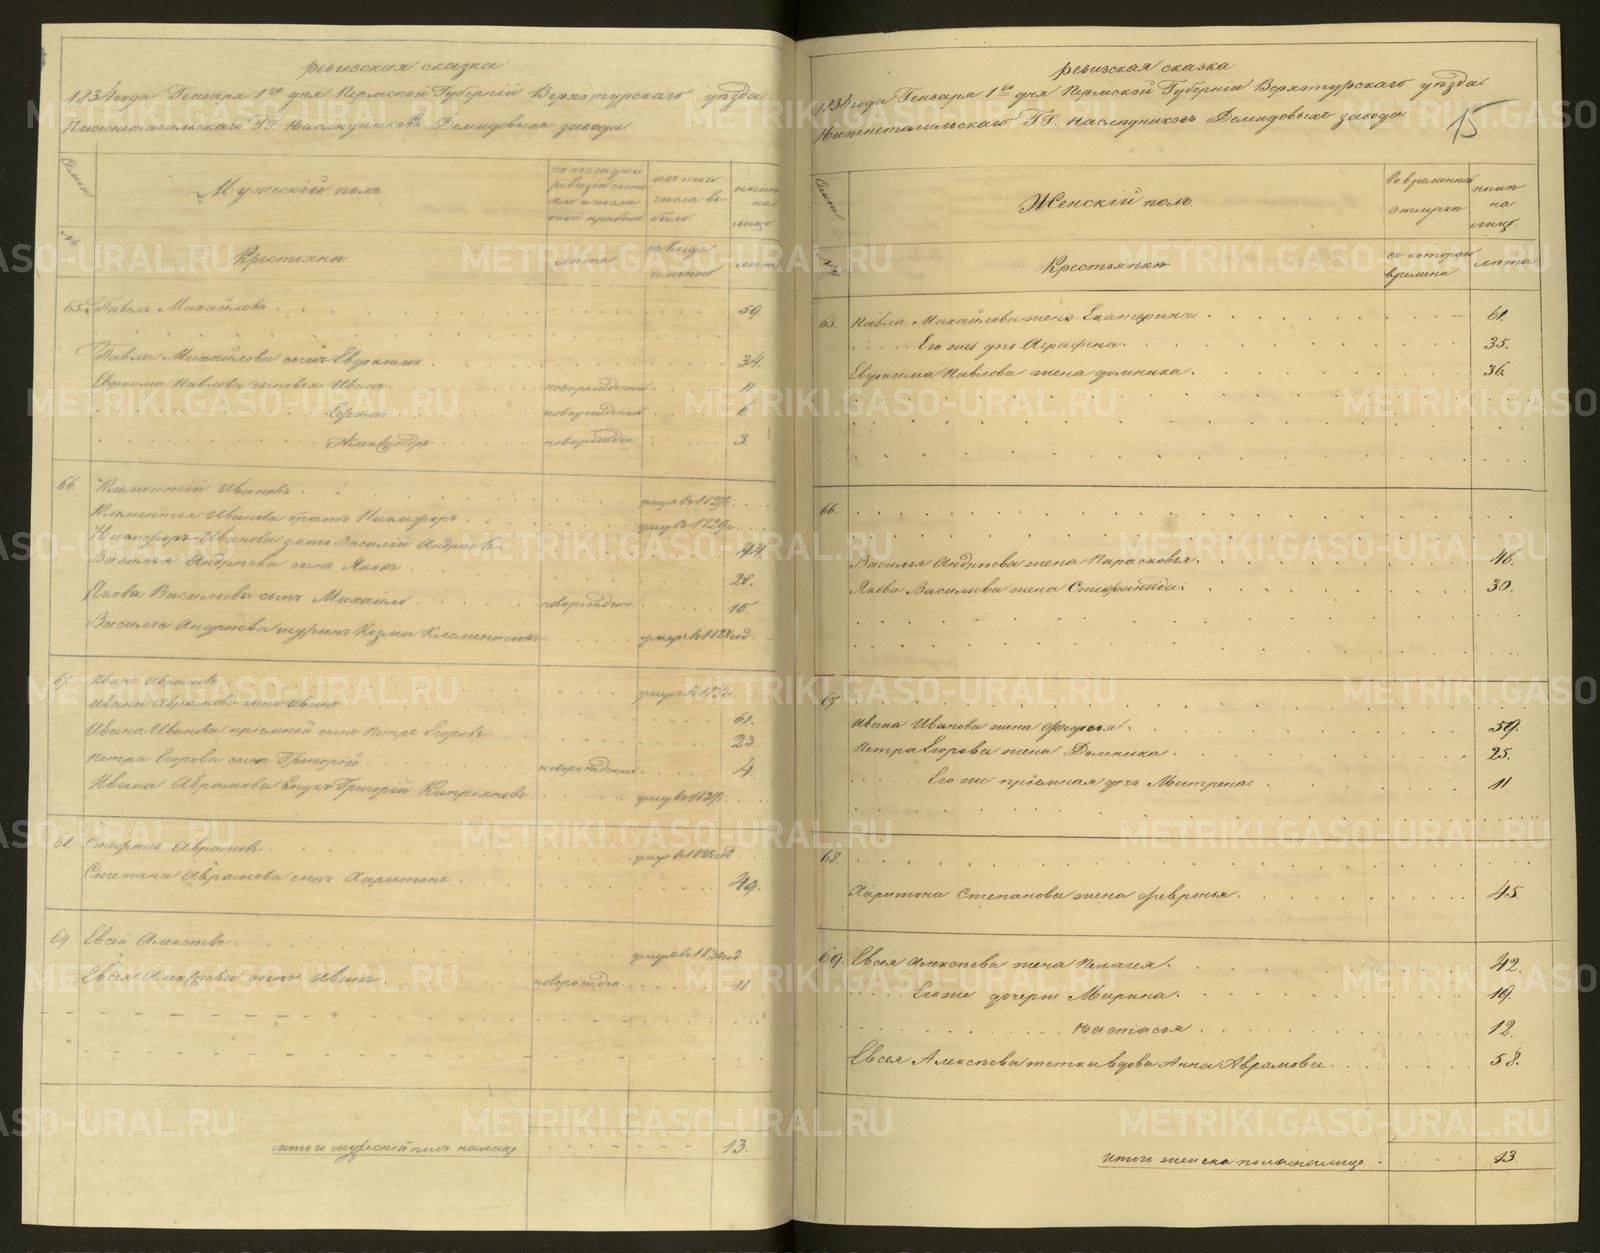 ревизская сказка
1834 года Генваря 1го дня Пермской Губернии Верхотурскаго уѣзда
Нижнетагильскаго ГГ. Наслѣдниковъ Демидовыхъ завода
Семьи
№
Мужескій полъ
по последней ревизіи состояло и после оной прибыло
изъ того числа выбыло
нынѣ на лицо
Крестьяне
лѣта
когда именно
лѣта
65. Павелъ Михайловъ 59
Павла Михайлова сынъ Евдокимъ 34
Евдокима Павлова сыновья Иванъ новорожденной 11
Ефимъ новорожденъ 6
Александръ новорожден 3
66. Клементій Ивановъ умеръ въ 1827г.
Клементья Иванова братъ Никифоръ умеръ въ 1826г.
Никифора Иванова зять Василій Андреевъ 44
Василья Андреева сынъ Яковъ 28.
Якова Васильева сынъ Михайло новорожден. 10
Василья Андреева шуринъ Козма Клементьевъ умеръ въ 1828 год
67. Иванъ Аврамовъ умеръ въ 1832г.
Ивана Аврамова сынъ Иванъ 61.
Ивана Иванова пріемной сынъ Петръ Егоровъ 23
Петра Егорова сынъ Григорій новорожденной 4
Ивана Аврамова внукъ Григорій Кипріяновъ умеръ въ 1827г.
68. Степанъ Аврамовъ умеръ въ 1825 год
Степана Аврамова сынъ Харитонъ 49.
69. Евсей Алексѣевъ умеръ въ 1830 год.
Евсея Алексѣева сынъ Иванъ новорожден 11
итого мужескій полъ налицо 13.
ревизская сказка
1834 года Генваря 1го дня Пермской Губерніи Верхотурскаго уѣзда
Нижнетагильскаго ГГ. Наслѣдниковъ Демидовыхъ завода
15
Семьи
№
Женскій полъ
Во временной отлучке
нынѣ на лицо
Крестьянки
съ котораго времени
лѣта
65. Павла Михайлова жена Екатерина 61.
Его же дочь Аграфена 35.
Евдокима Павлова жена Домника 36
66.
Василья Андреева жена Парасковья 46.
Якова Васильева жена Стефанида 30.
67.
Ивана Иванова жена 59.
Петра Егорова жена Домника 25.
Его же пріемная дочь Матрена 11
68.
Харитона Степанова жена Февронья 45
69. Евсея Алексѣева жена Пелагея 42.
Его же дочери Марина 19.
Настасья 12.
Евсея Алексѣева тетка вдова Анна Аврамова 58.
итого женска пола налицо 13.
METRIKI.GASO-URAL.RU